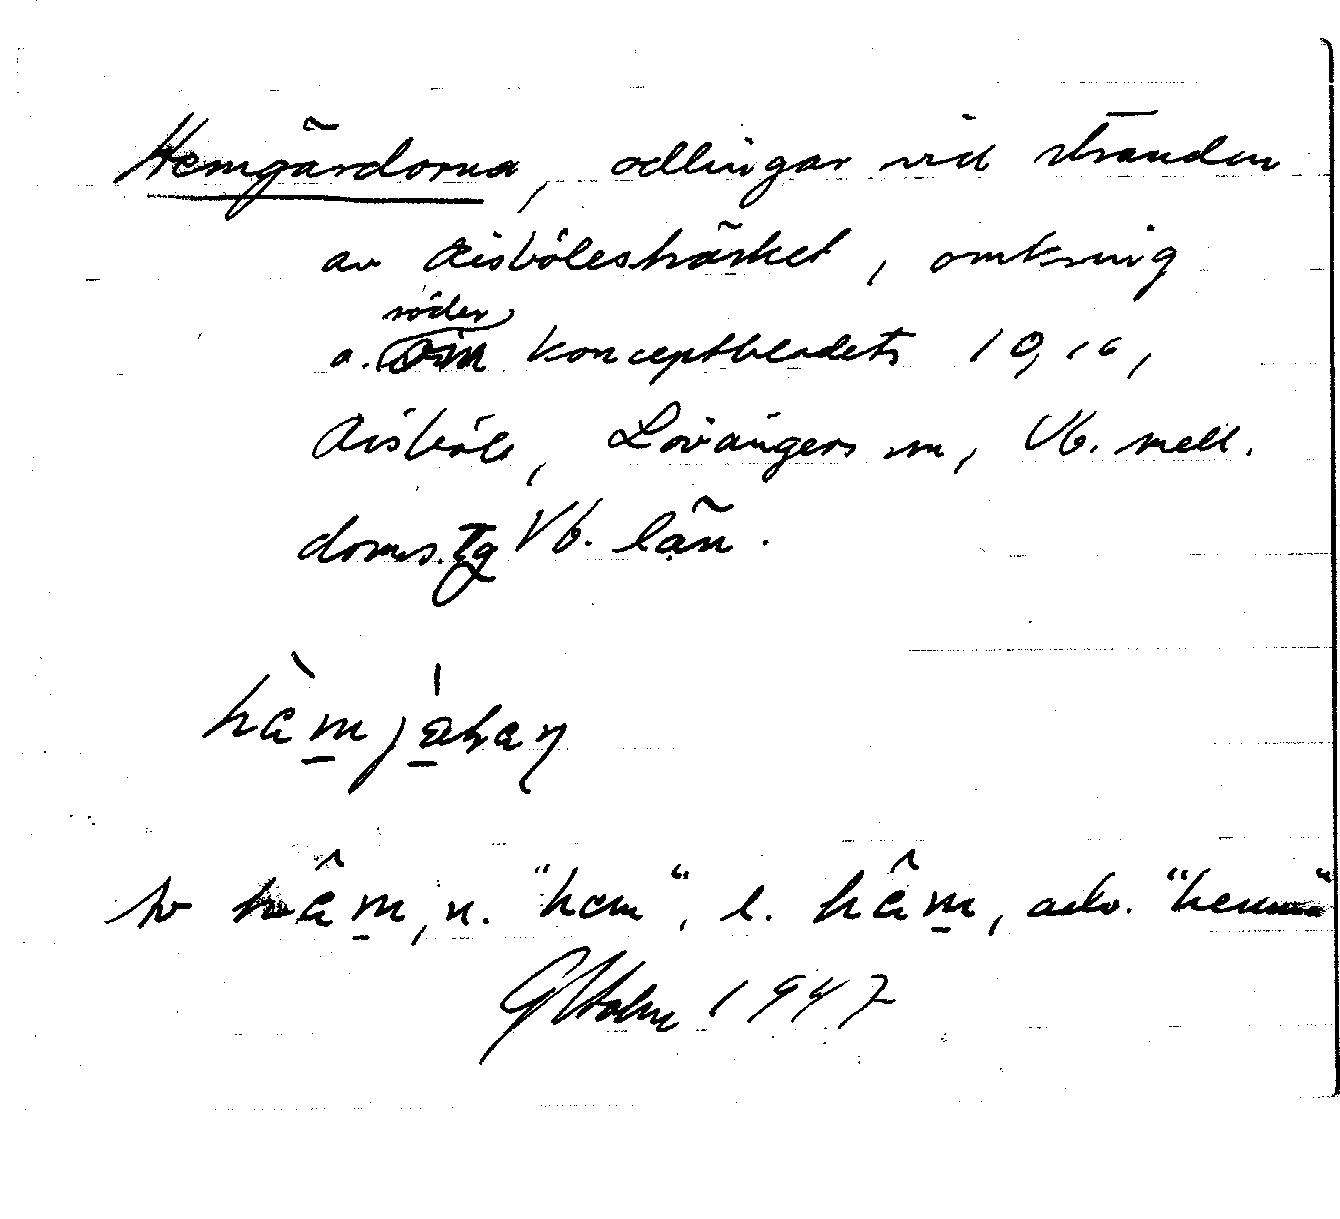 Hemgärdorna, odlingar vid stranden
av Aisböleträsket, omkring
söder
a. om konceptbladets 10, 16,
Aisböle, Lövångers sn, Vb. mell.
doms.tg Vb. län.
hàm̱ja̱han
hâm̱, n. "hem", l. hâm̱, adv. "hemma"
G Holm 1947